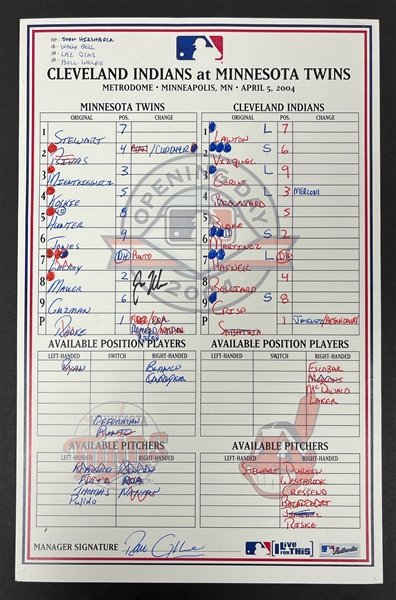 HP - JOHN HIRSHBECK
1B - WALLY BELL
2B - LAZ DIAZ
3B - BILL WELKE
CLEVELAND INDIANS at MINNESOTA TWINS
METRODOME • MINNEAPOLIS, MN • APRIL 5, 2004
MINNESOTA TWINS
ORIGINAL POS. CHANGE
1 STEWART 7
2 RIVAS 4 /CUDDYER
3 MIENTKIEWICZ 3
4 KOSKIE 5
5 HUNTER 8
6 JONES 9
7 LECROY DH PUNTO
8 MAUER 2
9 GUZMAN 6
P RADKE 1
CLEVELAND INDIANS
ORIGINAL POS. CHANGE
1 LAWTON L 7
2 VIZQUEL S 6
3 GERUT L 9
4 BROUSSARD L 3 MERLONI
5 BLAKE 5
6 MARTINEZ S 2
7 HAFNER L DH
8 BELLIARD 4
9 CRISP S 8
P SABATHIA 1 JIMENEZ/BETANCOURT
OPENING DAY
2004
AVAILABLE POSITION PLAYERS
LEFT-HANDED SWITCH RIGHT-HANDED
RYAN BLANCO
CUDDYER
OFFERMAN
PUNTO
AVAILABLE POSITION PLAYERS
LEFT-HANDED SWITCH RIGHT-HANDED
ESCOBAR
MERLONI
McDONALD
LAKER
AVAILABLE PITCHERS
LEFT-HANDED RIGHT-HANDED
ROMERO RINCON
FULTZ ROA
THOMAS NATHAN
PULIDO
AVAILABLE PITCHERS
LEFT-HANDED RIGHT-HANDED
STEWART DURBIN
WESTBROOK
CRESSEND
BETANCOURT
JIMENEZ
RISKE
MINNESOTA
MANAGER SIGNATURE
I Live FOR THIS!
Authentic